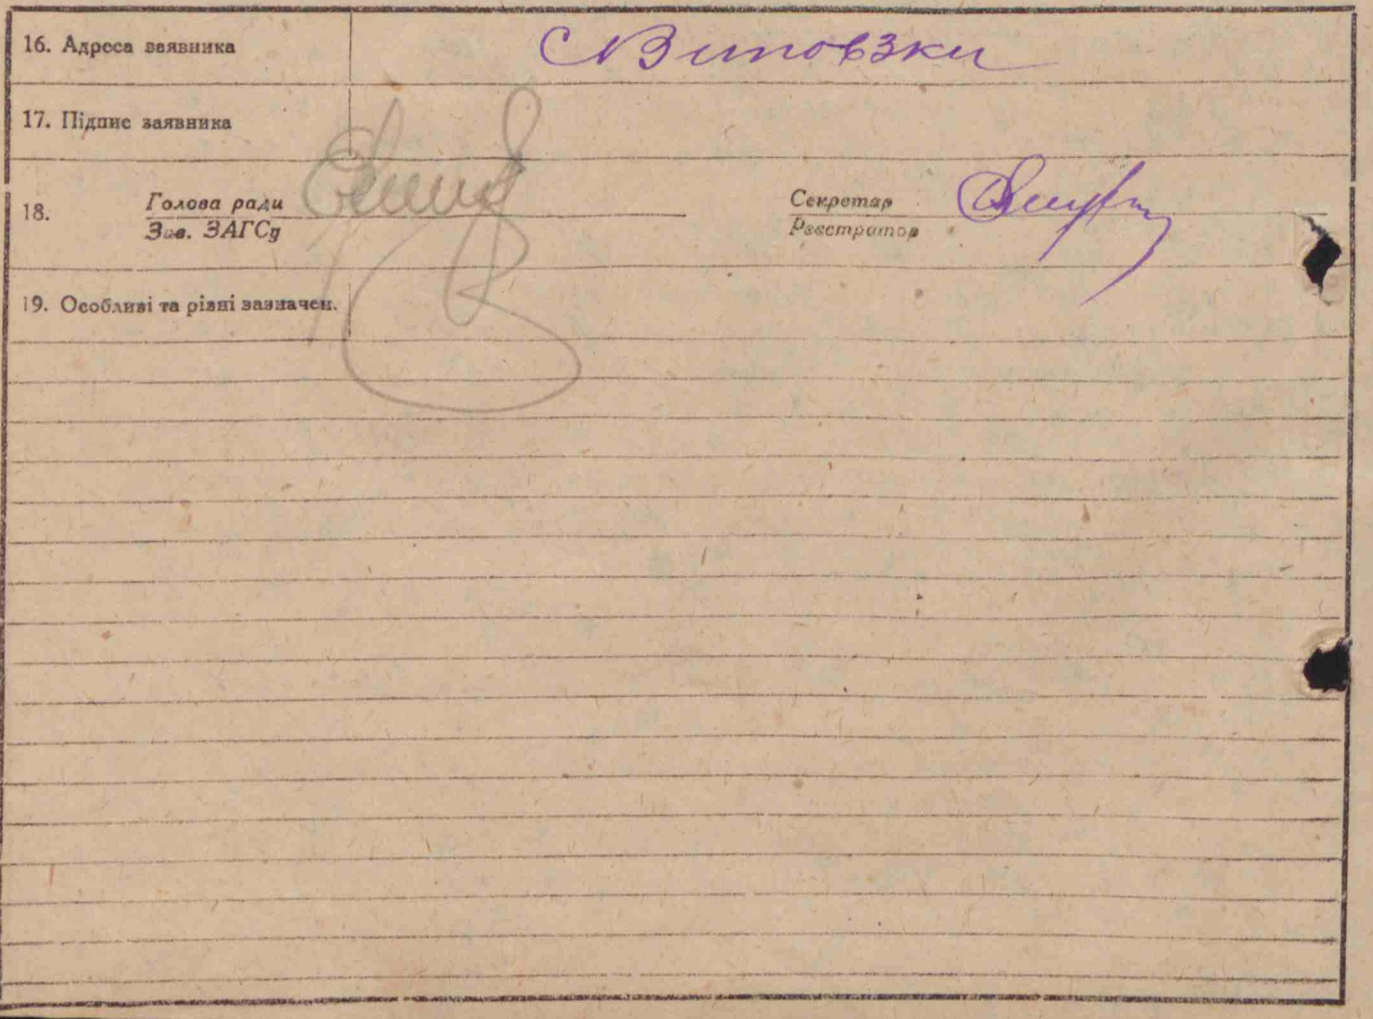 16. Адреса заявника с Виповзки
17. Підпис заявника
18. Голова ради Секретар
Зав. ЗАГСу Реєстратор
19. Особливі та різні зазначен.